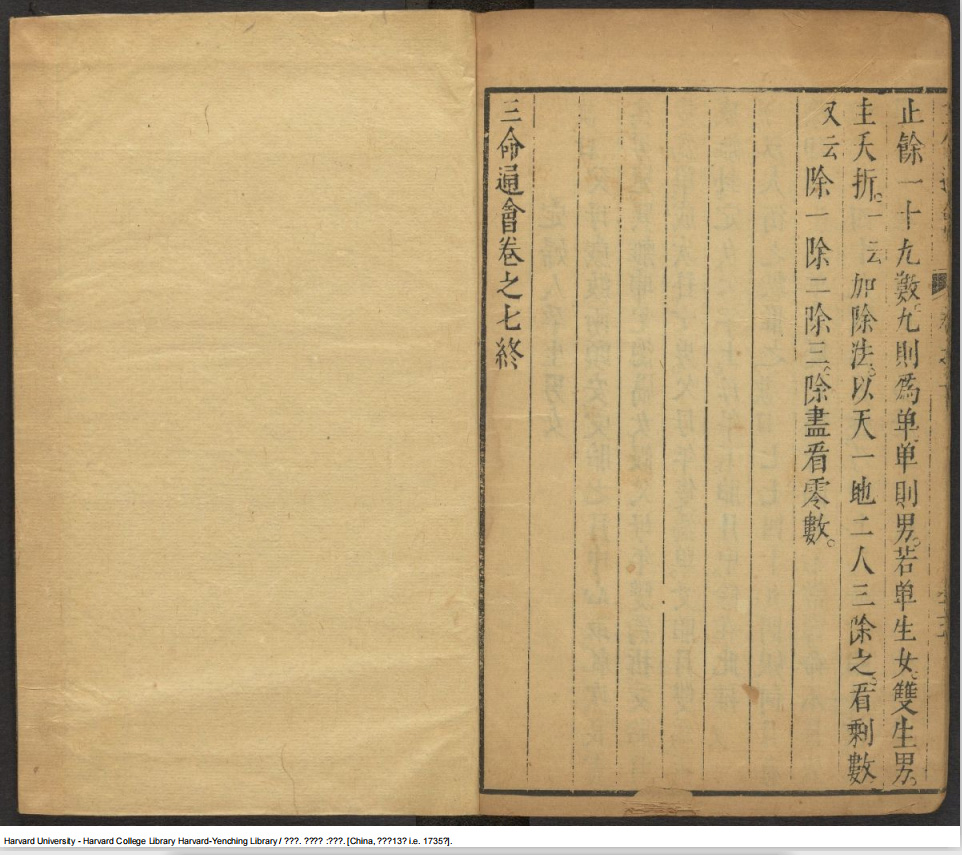 止餘一十九數。九則爲单。单則男。若单生女。雙生男。
主夭折。一云加除法。以天一地二人三除之。看剩數。
又云除一除二除三。除盡看零數。
三命通會卷之七終
Harvard University - Harvard College Library Harvard-Yenching Library / ???. ???? :???. [China, ???13? i.e. 1735?].